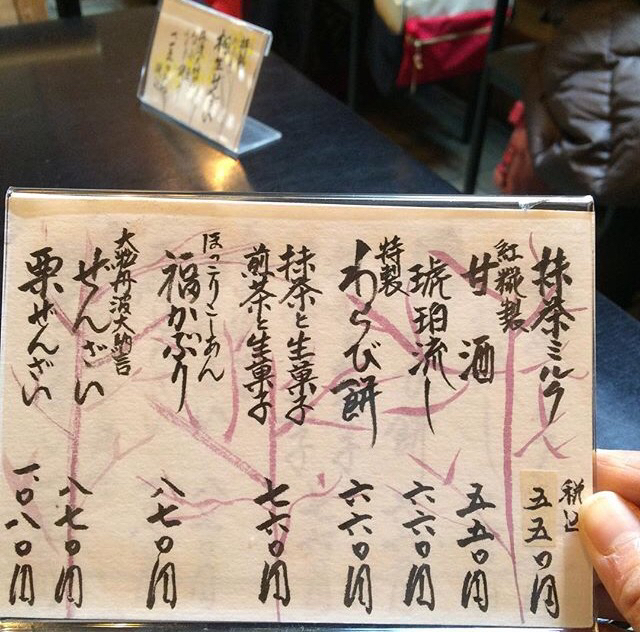 抹茶ミルク 税込 五五〇円
紅糀製
甘酒 五五〇円
琥珀流し 六六〇円
特製
わらび餅 六六〇円
抹茶と生菓子
煎茶と生菓子 七六〇円
ほっこりこしあん
福かぶり 八七〇円
大粒丹波大納言
ぜんざい 八七〇円
栗ぜんざい 一、〇八〇円